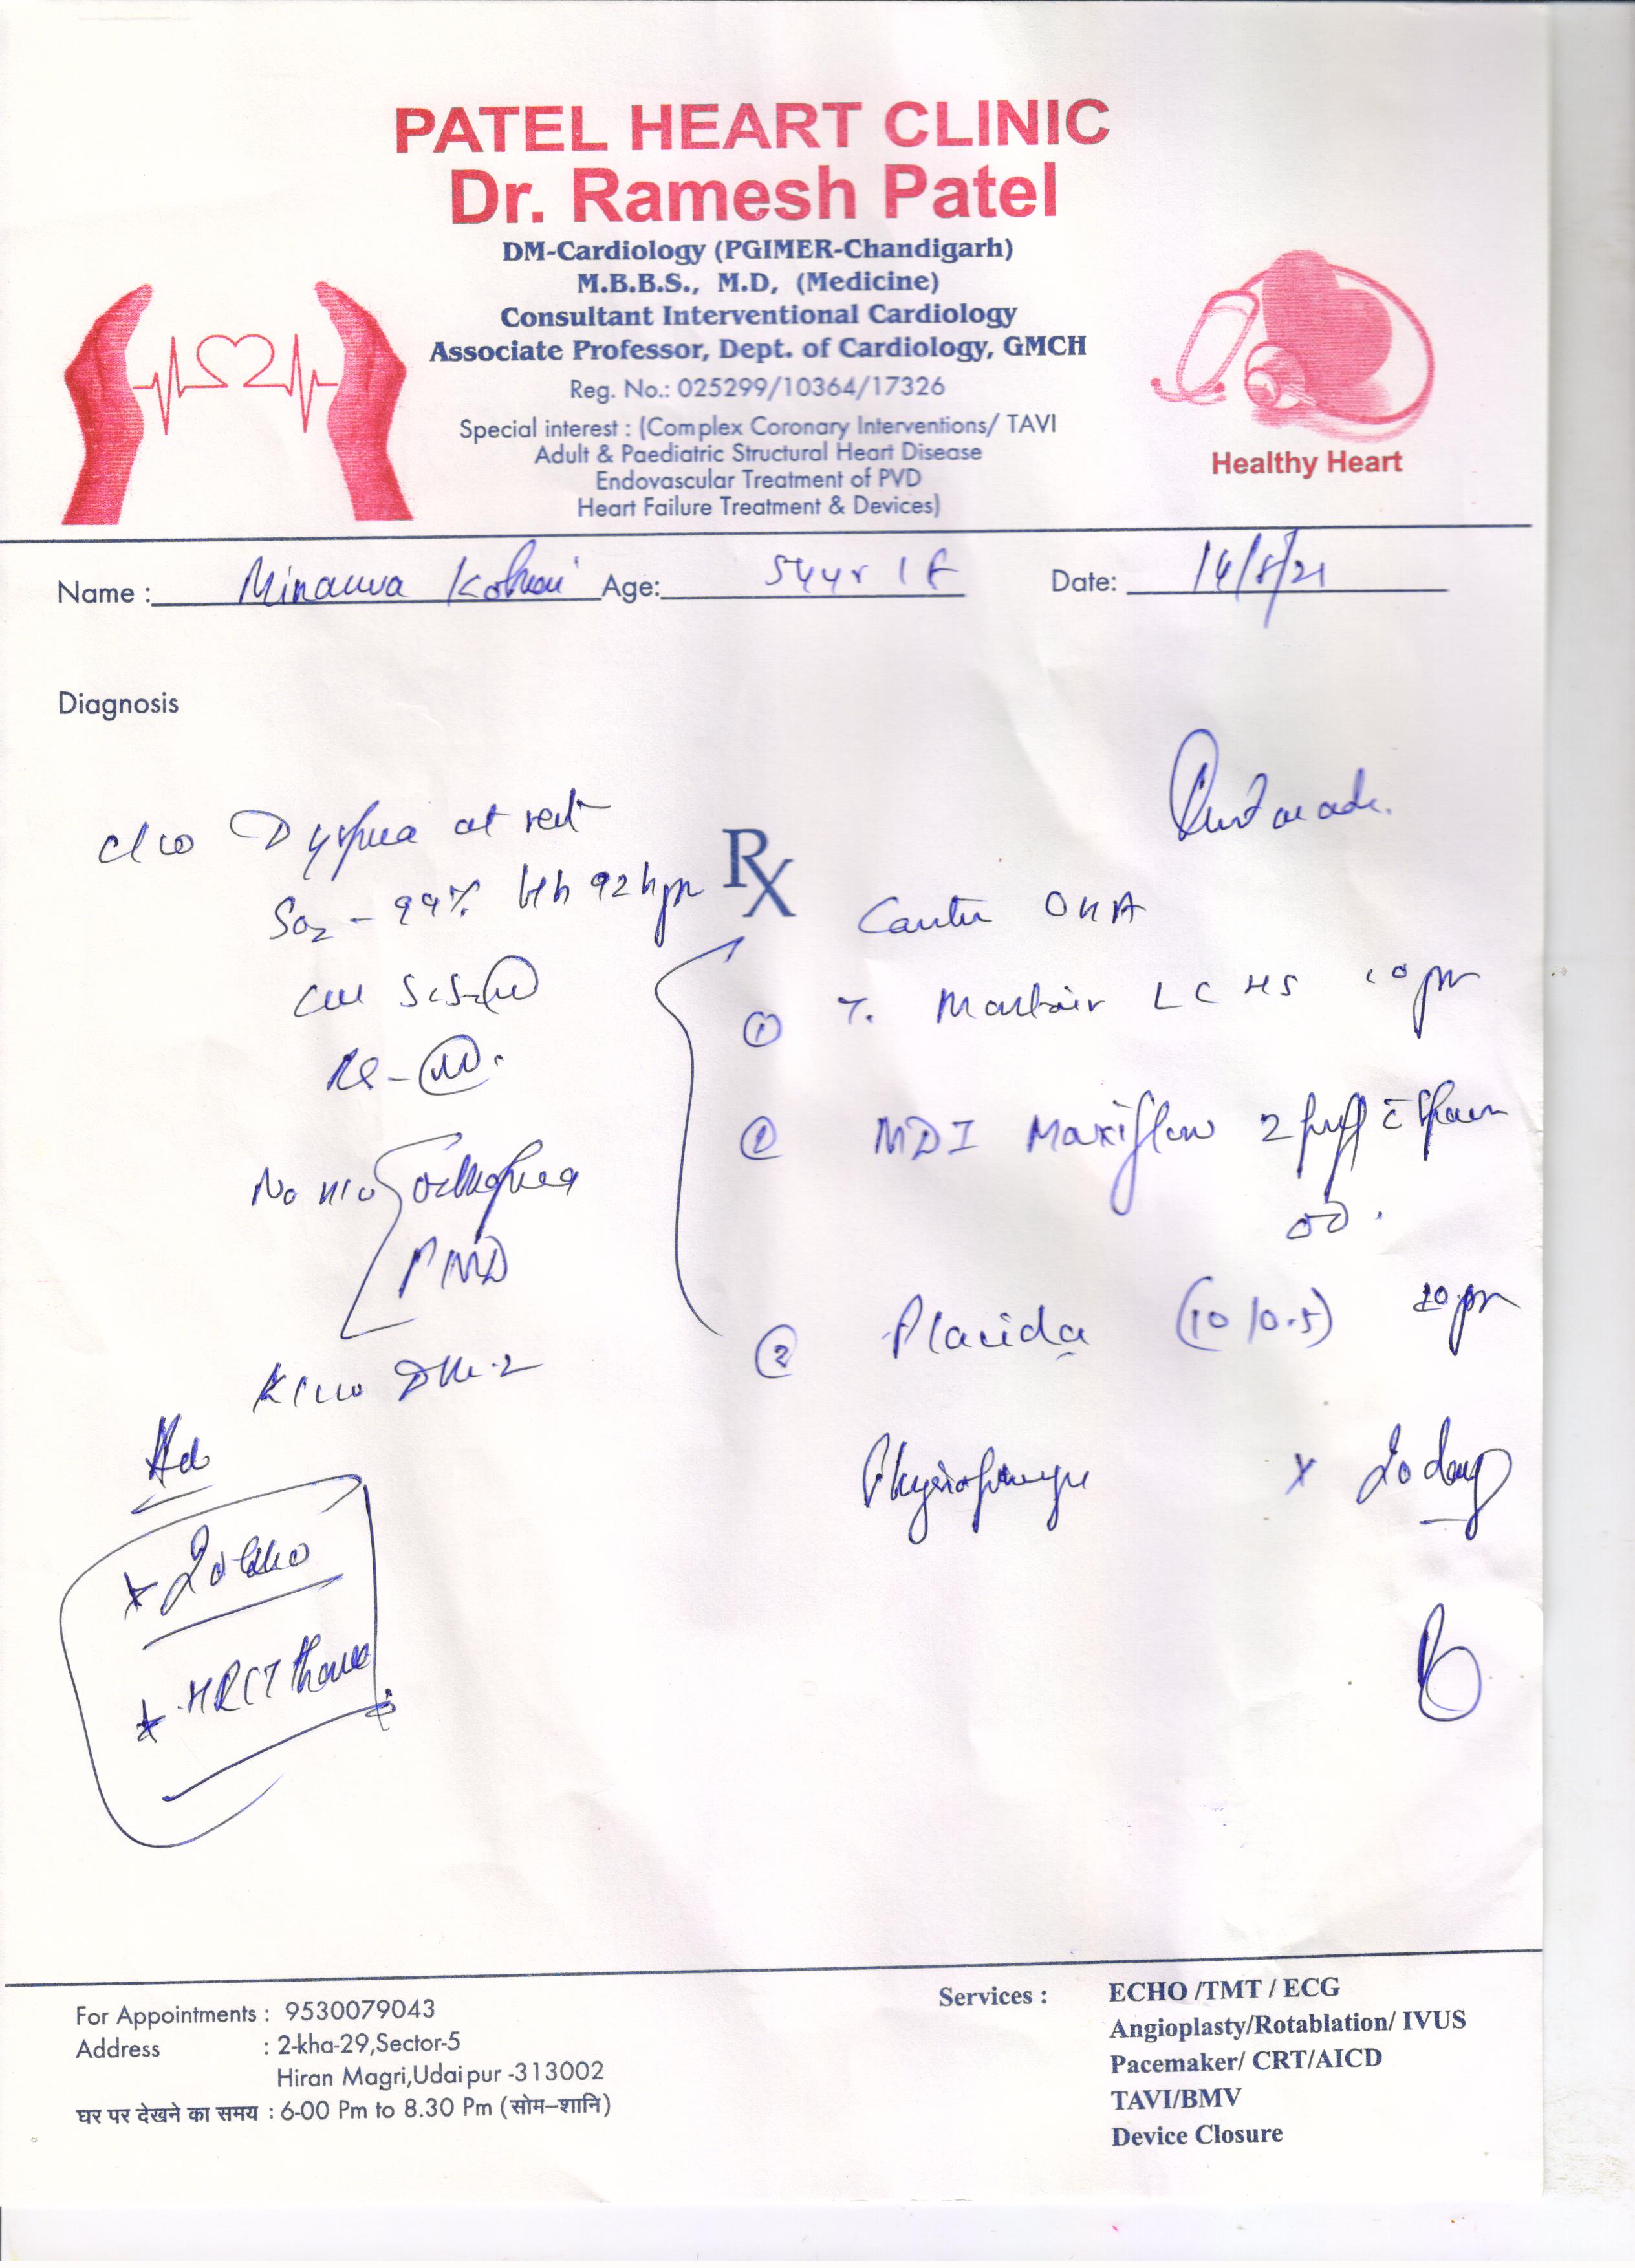 PATEL HEART CLINIC
Dr. Ramesh Patel
DM-Cardiology (PGIMER-Chandigarh)
M.B.B.S., M.D, (Medicine)
Consultant Interventional Cardiology
Associate Professor, Dept. of Cardiology, GMCH
Reg. No.: 025299/10364/17326
Special interest : (Complex Coronary Interventions/ TAVI
Adult & Paediatric Structural Heart Disease
Endovascular Treatment of PVD
Heart Failure Treatment & Devices)
Healthy Heart
Name : Age: 54yr / F Date:
Diagnosis
c/o Dyspnea at rest
SO2 - 99%
Rx
OHA
① T. Montair LC HS 10 pm
② MDI Maxiflow 2 puff c̄ Spacer
OD.
No H/o Orthopnea
PND
K/c/o DM-2
③ Placida (10/0.5) 10 pm
Ad
x 20 days
* 2D Echo
* HRCT Thorax
For Appointments : 9530079043
Address : 2-kha-29,Sector-5
Hiran Magri,Udaipur -313002
घर पर देखने का समय : 6-00 Pm to 8.30 Pm (सोम–शानि)
Services : ECHO /TMT / ECG
Angioplasty/Rotablation/ IVUS
Pacemaker/ CRT/AICD
TAVI/BMV
Device Closure